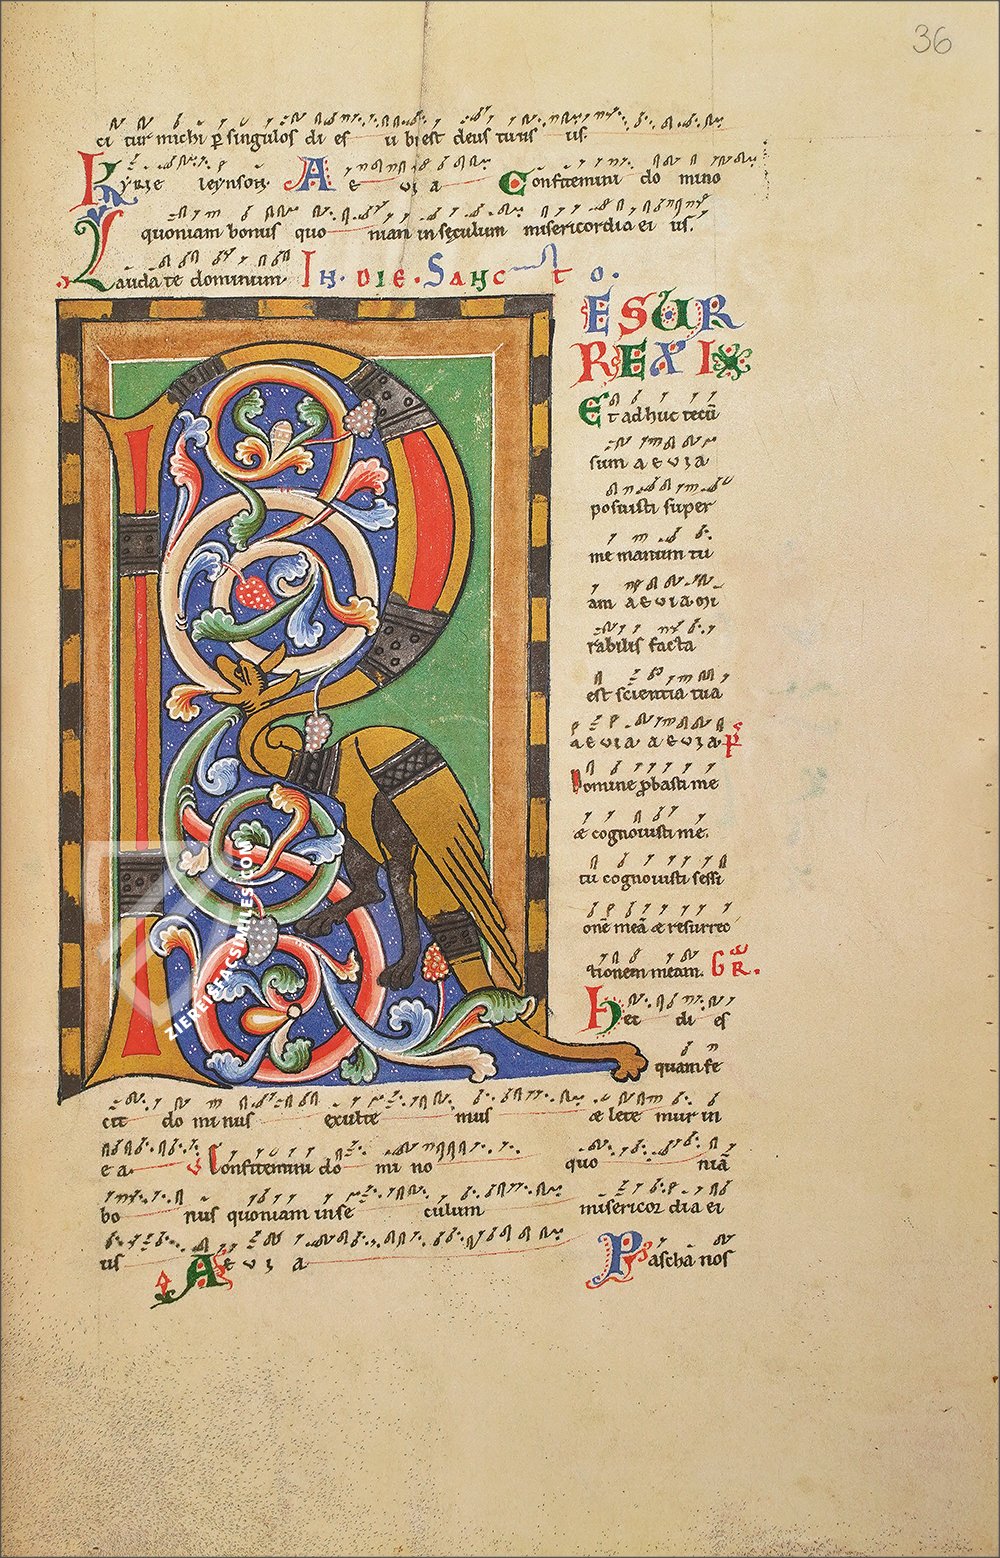 36
ci tur michi ꝑ singulos di es u bi est deus tuus us.
Kyrie leyson. A e v i a Confitemini do mino
quoniam bonus quo niam in sęculum misericordia ei us.
Laudate dominum. In. die. Sanc to.
R ESUR
REXI
Et adhuc tecū
sum a e v i a
posuisti super
me manum tu
am a e v i a mi
rabilis facta
est scientia tua
a e v i a a e v i a P̄
Domine ꝓbasti me
& cognouisti me.
tu cognouisti sessi
onē meā & resurrec
tionem meam. GR.
Hec di es
quam fe
cit do minus exulte mus & lete mur in
e a. V Confitemini do mi no quo niā
bo nus quoniam in se culum misericor dia ei
us A e v i a Pascha nos
ZIEREISFACSIMILES.COM